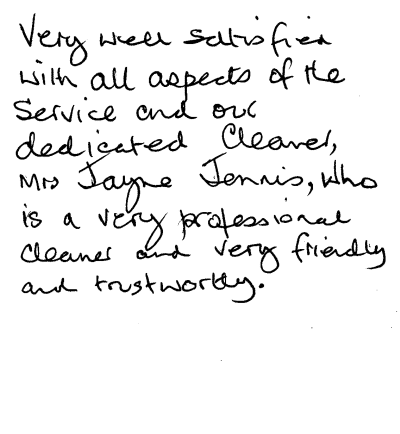 Very well satisfied
with all aspects of the
Service and our
dedicated Cleaner,
Mrs Jayne Jennis, who
is a very professional
cleaner and very friendly
and trustworthy.